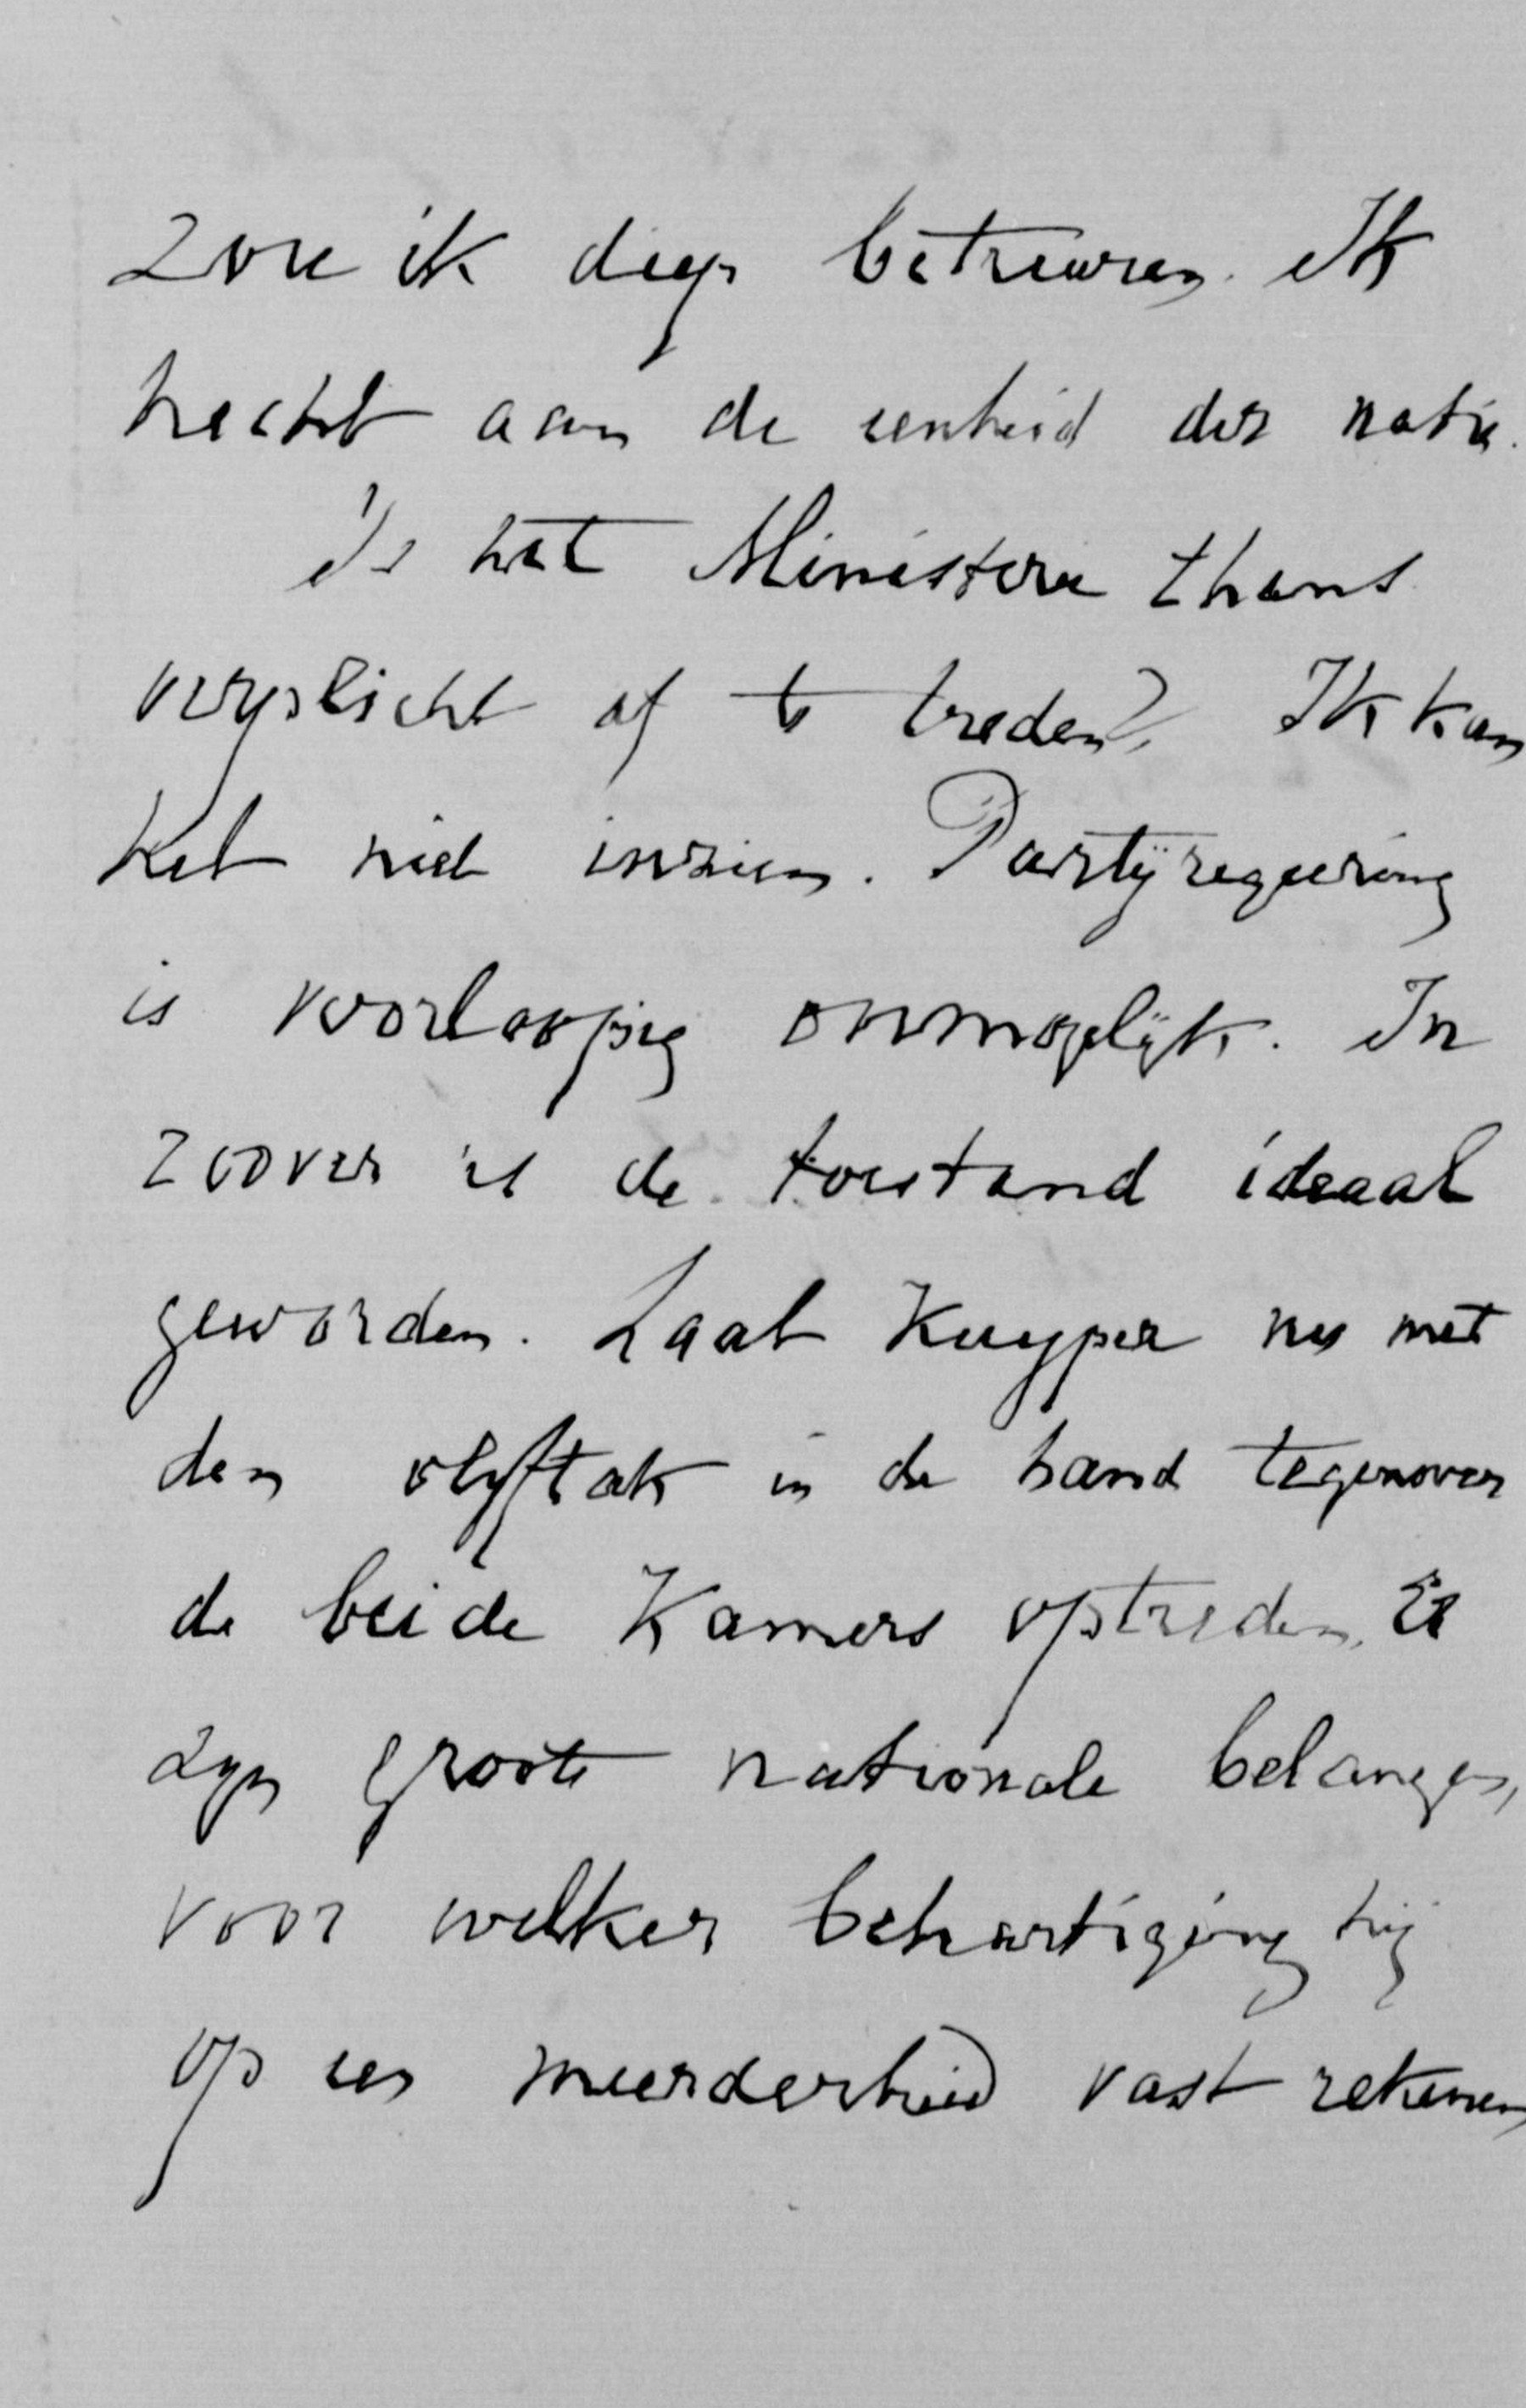 zou ik diep betreuren. Ik
hecht aan de eenheid der natie.
Is het Ministerie thans
verplicht af te treden? Ik kan
het niet inzien. Partijregeering
is voorloopig onmogelijk. In
zoover is de toestand ideaal
geworden. Laat Kuyper nu met
den olijftak in de hand tegenover
de beide Kamers optreden. Er
zijn groote nationale belangen,
voor welker behartiging hij
op een meerderheid vast rekenen